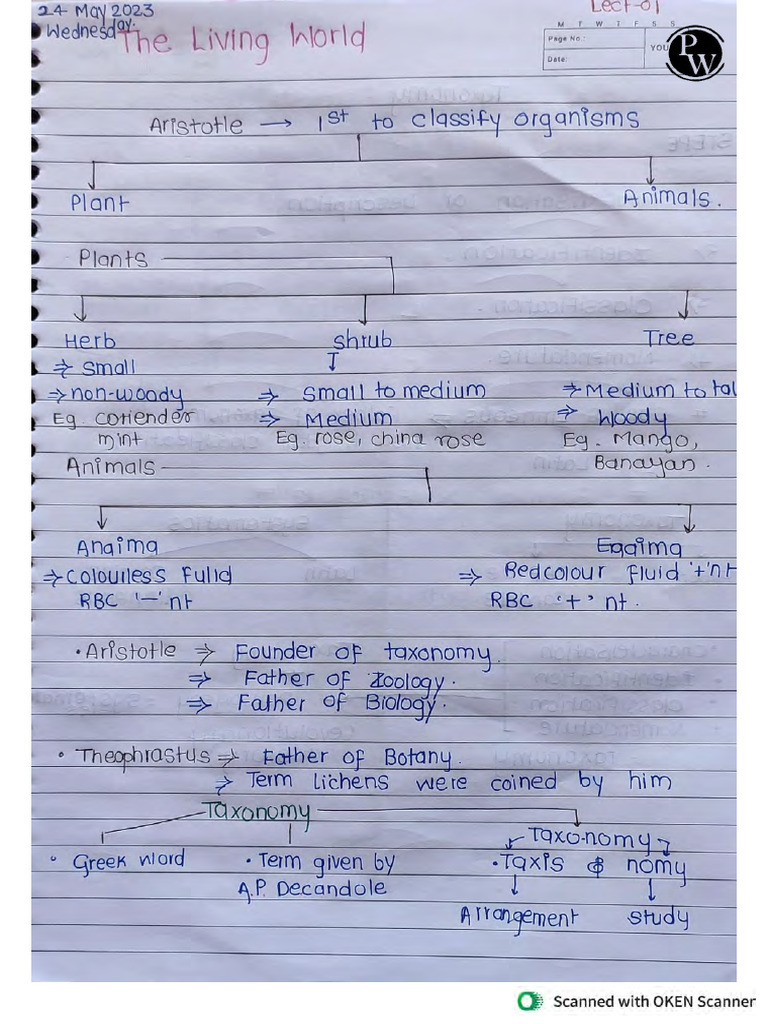 24 May 2023
Wednesday.
Lect-01
The Living World
M T W T F S S
Page No.:
Date:
YOU
PW
Aristotle → 1st to classify organisms
Plant Animals.
Plants
Herb Shrub Tree
⇒ Small
⇒ non-woody ⇒ Small to medium ⇒ Medium to tal
Eg. coriender ⇒ Medium ⇒ Woody
mint Eg. rose, china rose Eg. Mango,
Banayan.
Animals
Anaima Eaaima
⇒ Colourless Fulid ⇒ Redcolour fluid '+'nt
RBC '-' nt RBC '+' nt.
• Aristotle ⇒ Founder of taxonomy.
⇒ Father of Zoology.
⇒ Father of Biology.
• Theophrastus ⇒ Father of Botany.
⇒ Term lichens were coined by him
Taxonomy
Taxo-nomy
• Greek word • Term given by • Taxis & nomy
A.P. Decandole
Arrangement study
Scanned with OKEN Scanner